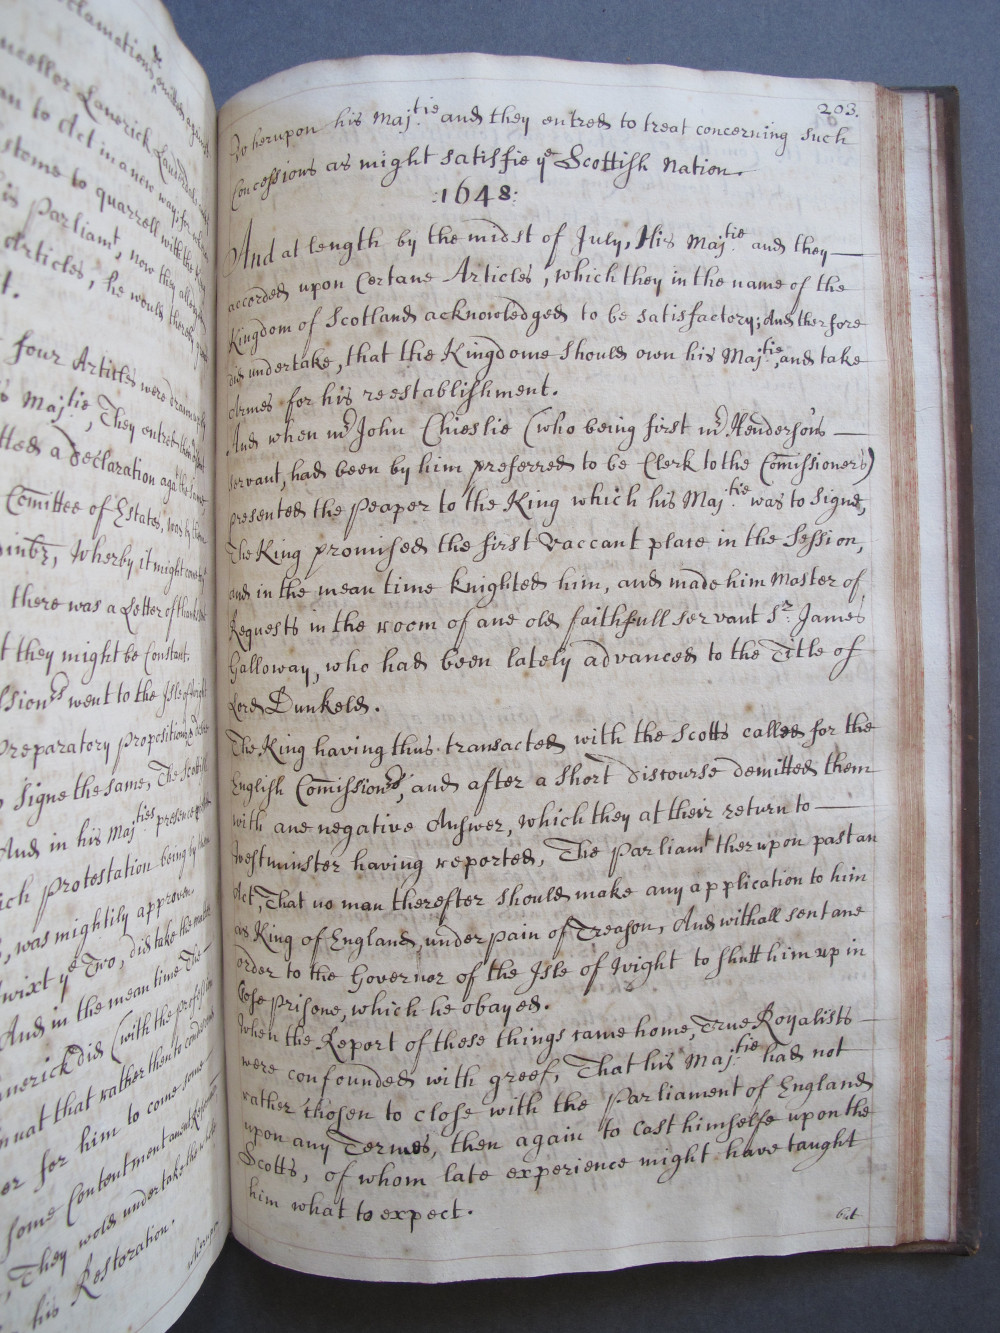 clamations emitted against
ncellor Lanerick Lauderdale
an to Act in a new way; for
stome to quarrell with the King
is Parliamt, now they
Articles, he would therby
t.
four Articles were drawn up by
s Maj:tie, They entred
tted a Declaration agat the same,
Comittee of Estates, was by them
inbr, Wherby it might
there was a Letter of thanks
t they might be Constant.
ssionrs went to the Isle of wight
Preparatory Propositions
o Signe the same, The Scottish
And in his Maj:ties presence
ich Protestation being by them
, was mightily approven.
wixt ye Two, did take the
And in the mean time The
anerick did (with the profession
uat that rather then to
er for him to come some
some Contentment anent Religion
, They wold undertake the
his Restoration.
wherupon
203.
Wherupon his Maj:tie and they entred to treat concerning such
Concessions as might satisfie ye Scottish Nation.
:1648:
And at length by the midst of July, His Maj:tie and they —
accorded upon Certane Articles, which they in the name of the
Kingdom of Scotland acknowledged to be satisfactory; And therfore
did undertake, that the Kingdome should own his Maj:tie, and take
Armes for his reestablishment.
And when mr John Chieslie (who being first mr Henderson's —
servant, had been by him preferred to be Clerk to the Comissioners)
presented the Peaper to the King which his Maj:tie was to Signe,
The King promised the first vaccant place in the Session,
and in the mean time knighted him, and made him Master of
Requests in the room of ane old faithfull servant Sr: James
Galloway, who had been lately advanced to the Title of
Lord Dunkeld.
The King having thus transacted with the Scotts called for the
English Comissionrs, and after a short discourse demitted them
with ane negative Answer, which they at their return to —
Westminster having reported, The Parliamt therupon past an
Act, That no man therefter should make any application to him
as King of England, under pain of Treason, And withall sent ane
order to the Governor of the Isle of Wight to shutt him up in
Close prisone, which he obayed.
When the Report of these things came home, True Royalists —
were confounded with greef, That his Maj:tie had not
rather chosen to close with the Parliament of England
upon any Termes, then again to cast himselfe upon the
Scotts, of whom late experience might have taught
him what to expect.
but